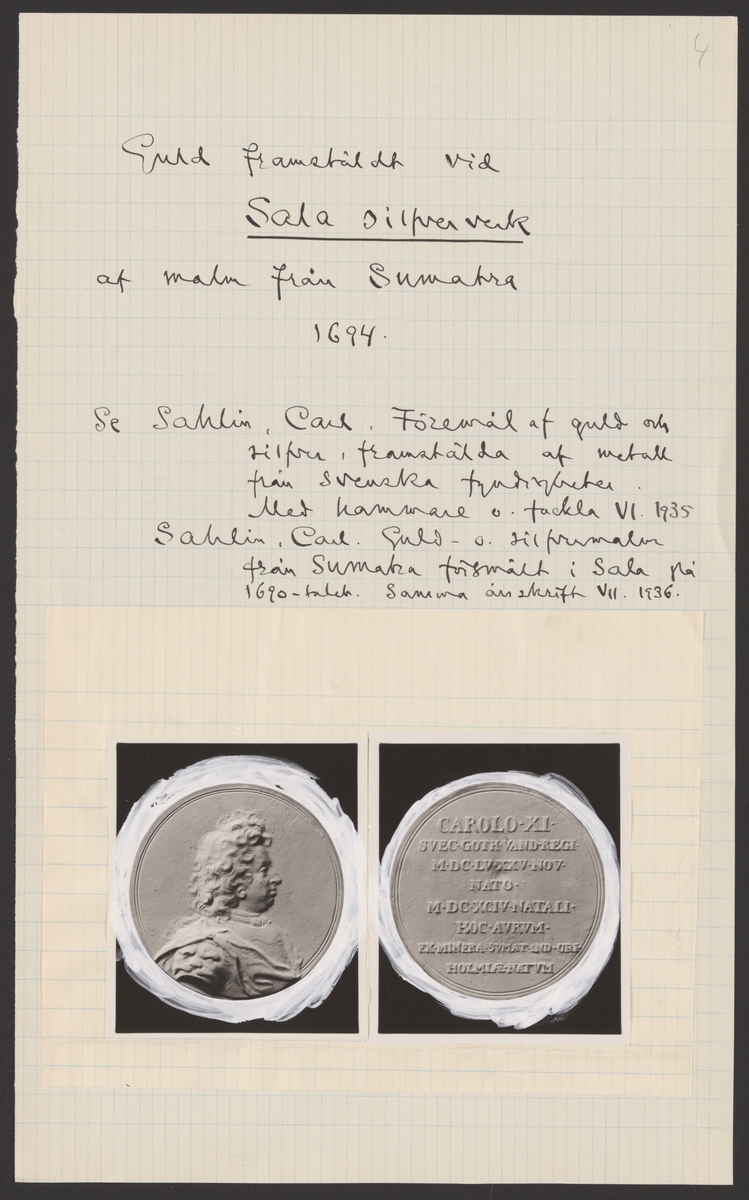 4
Guld framstäldt vid
Sala silfververk
af malm från Sumatra
1694.
Se Sahlin, Carl. Föremål af guld och
silfver, framstälda af metall
från svenska fyndigheter.
Med hammare o. fackla VI. 1935
Sahlin, Carl. Guld- o. silfvermalm
från Sumatra försmält i Sala på
1690-talet. Samma årsskrift VII. 1936.
CAROLO·XI·
SVEC·GOTH·VAND·REGI·
M·DC·LV·XXV·NOV·
NATO·
M·DC·XCIV·NATALI·
HOC·AVRVM·
EX·MINERA·SVMAT·IND·ORI·
HOLMIÆ·NATVM